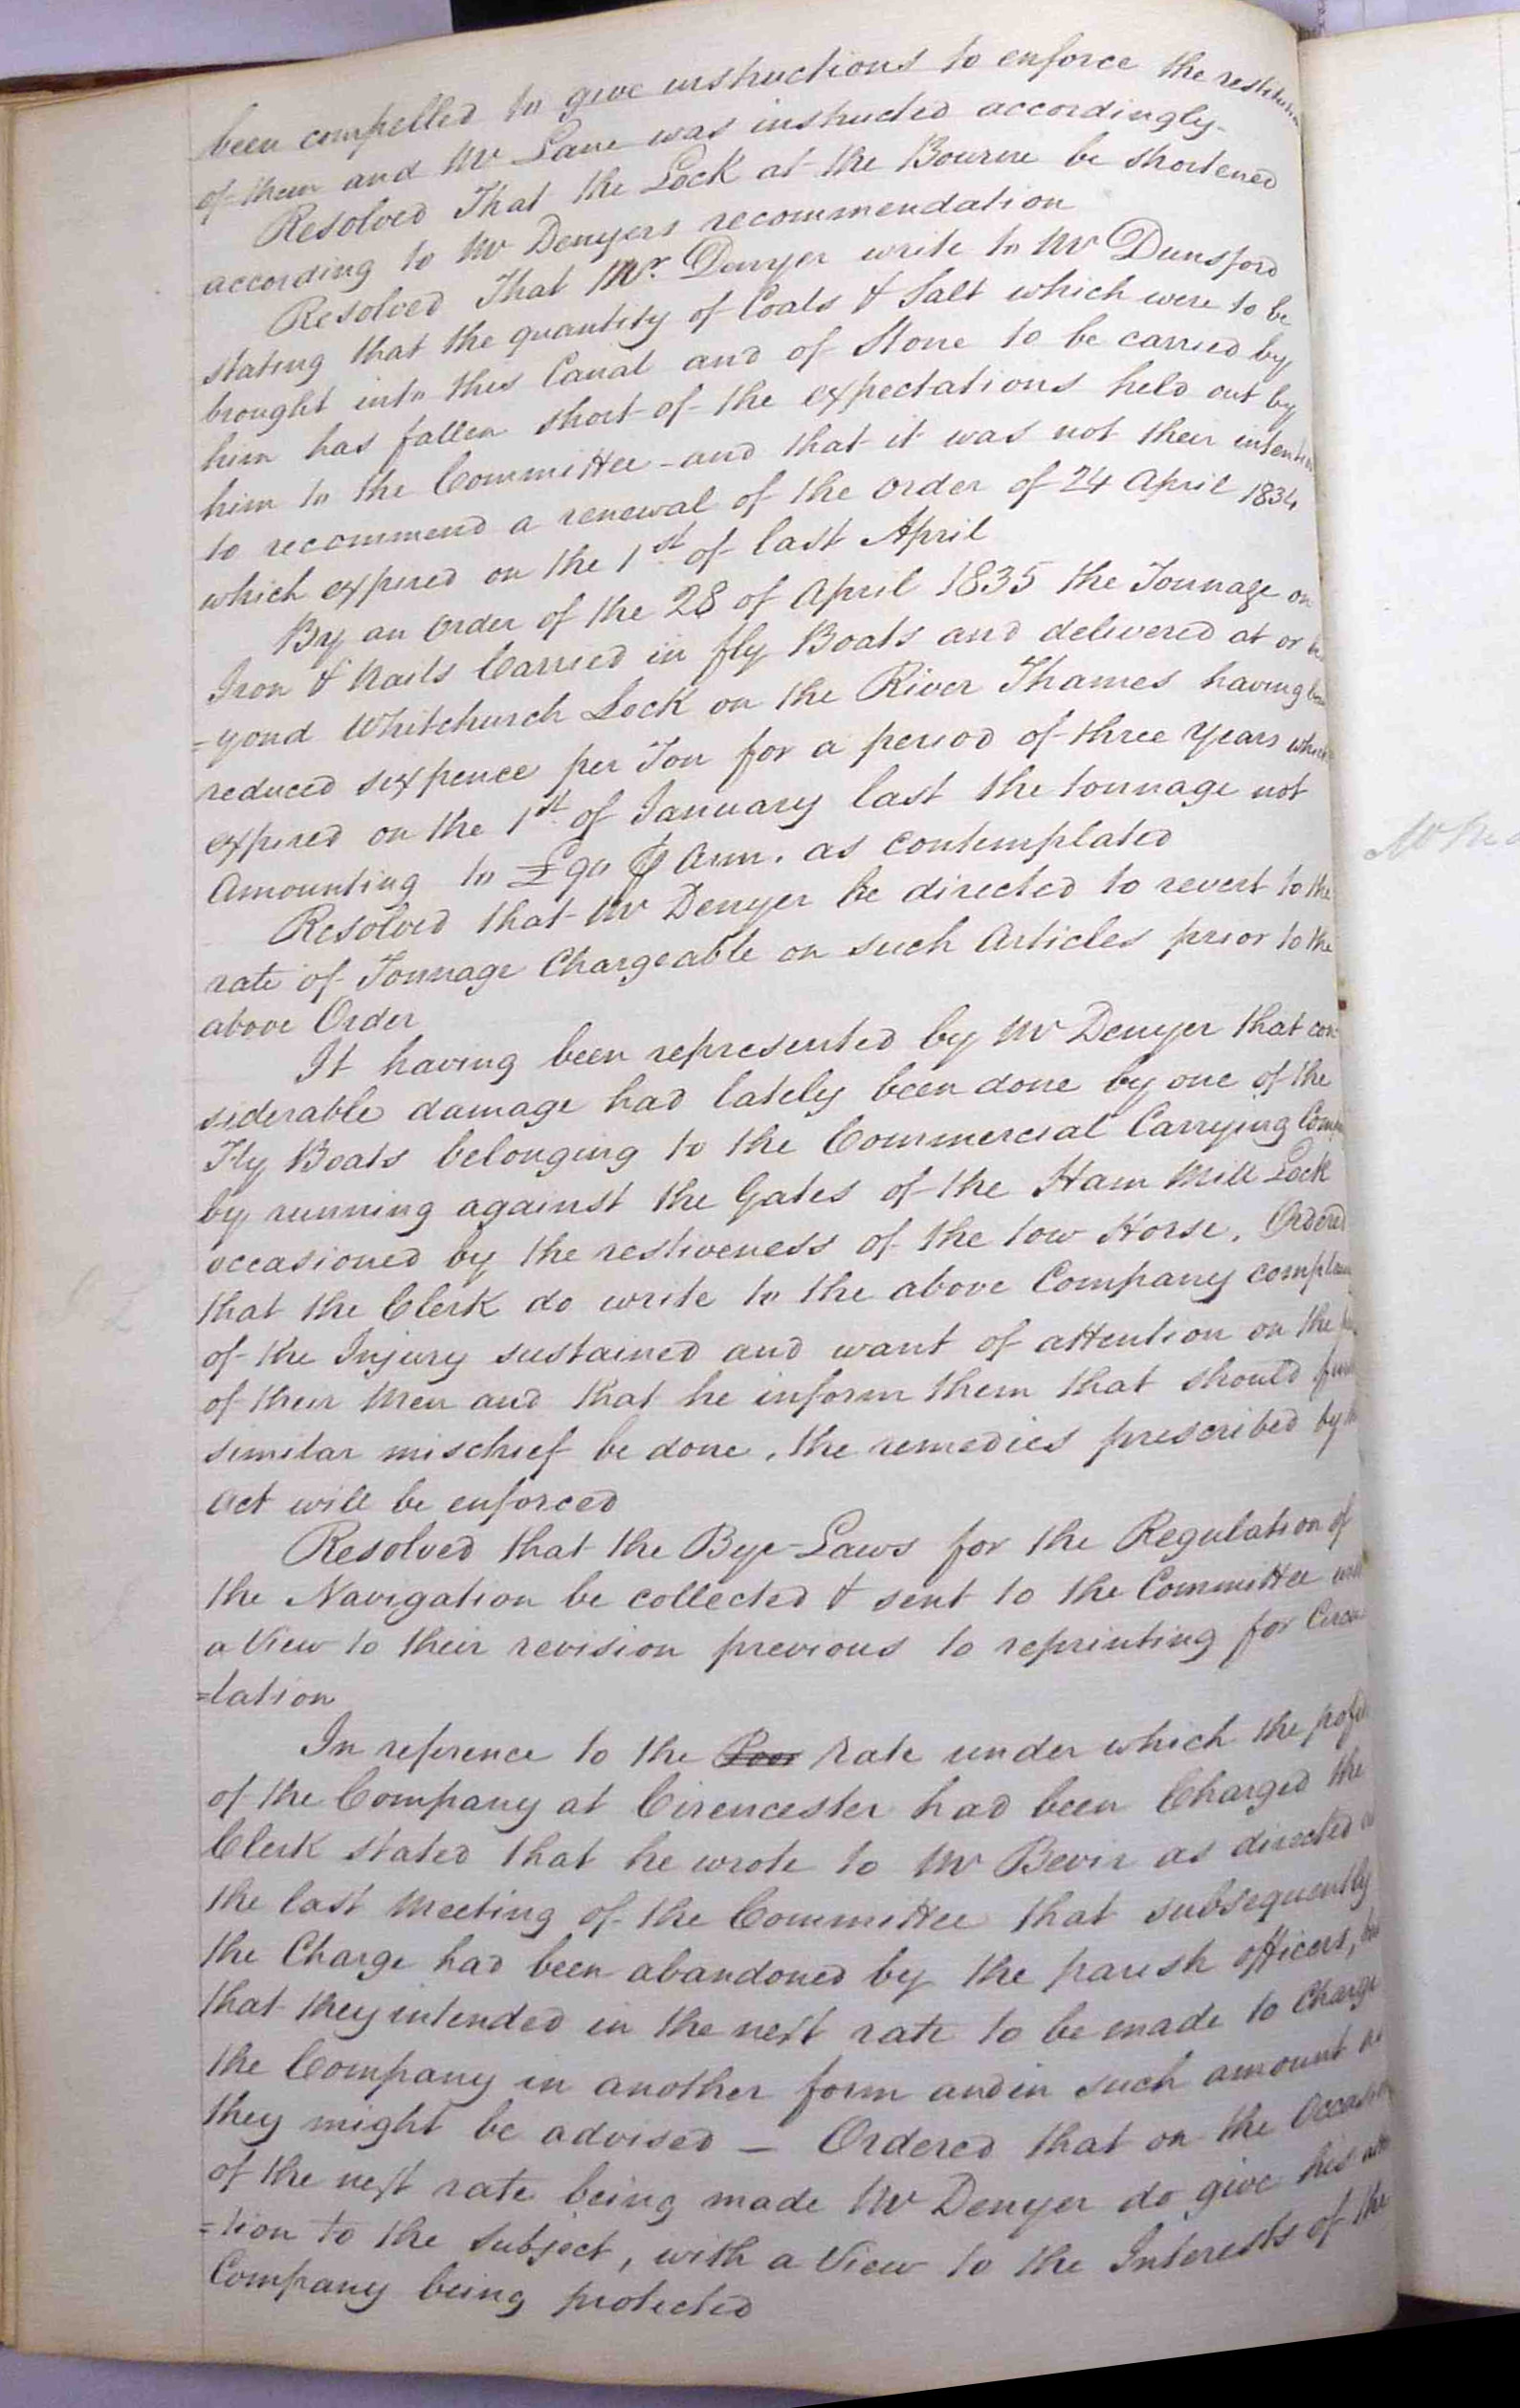 been compelled to give instructions to enforce the restitution
of them and Mr Lane was instructed accordingly.
Resolved That the Lock at the Bourne be shortened
according to Mr Denyers recommendation
Resolved That Mr. Denyer write to Mr Dunsford
stating that the quantity of Coals & Salt which were to be
brought into this Canal and of Stone to be carried by
him has fallen short of the expectations held out by
him to the Committee - and that it was not their intention
to recommend a renewal of the order of 24 April 1834
which expired on the 1st of last April
By an order of the 28 of April 1835 the Tonnage on
Iron & Nails Carried in fly Boats and delivered at or be
=yond Whitchurch Lock on the River Thames having been
reduced sixpence per Ton for a period of three Years which
expired on the 1st of January last the tonnage not
Amounting to £90 ⅌ Ann. as contemplated
Resolved that Mr Denyer be directed to revert to the
rate of Tonnage Chargeable on such Articles prior to the
above Order
It having been represented by Mr Denyer that con
siderable damage had lately been done by one of the
Fly Boats belonging to the Commercial Carrying Comp
by running against the Gates of the Ham Mill Lock
occasioned by the restiveness of the tow Horse, Ordered
that the Clerk do write to the above Company complain
of the Injury sustained and want of attention on the
of their Men and that he inform them that should
similar mischief be done, the remedies prescribed by
Act will be enforced
Resolved that the Bye-Laws for the Regulation of
the Navigation be collected & sent to the Committee with
a View to their revision previous to reprinting for Circu
=lation
In reference to the Poor Rate under which the
of the Company at Cirencester had been Charged the
Clerk stated that he wrote to Mr Bevir as directed
the last Meeting of the Committee that subsequently
the Charge had been abandoned by the parish officers, but
that they intended in the next rate to be made to Charge
the Company in another form and in such amount as
they might be advised — Ordered that on the Occasion
of the next rate being made Mr Denyer do give his atten
=tion to the Subject, with a View to the Interests of the
Company being protected